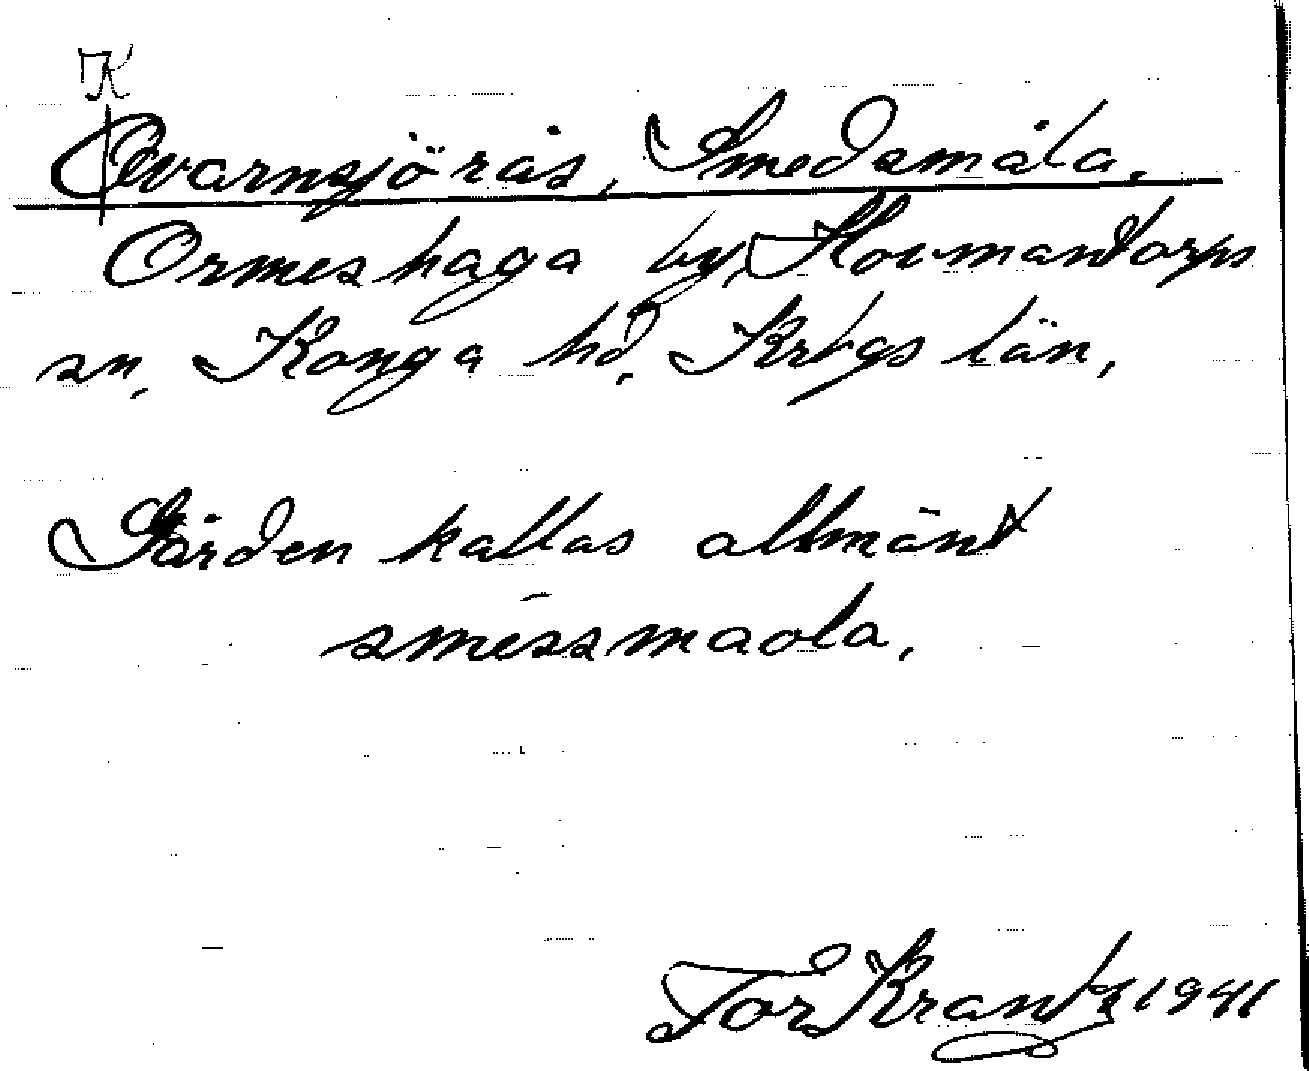 K
Qvarnsjörås, Smedamåla.
Ormeshaga by, Hovmantorps
sn, Konga hd, Krbgs län,
Gården kallas allmänt
smēssmaola,
Tor Krantz 1941